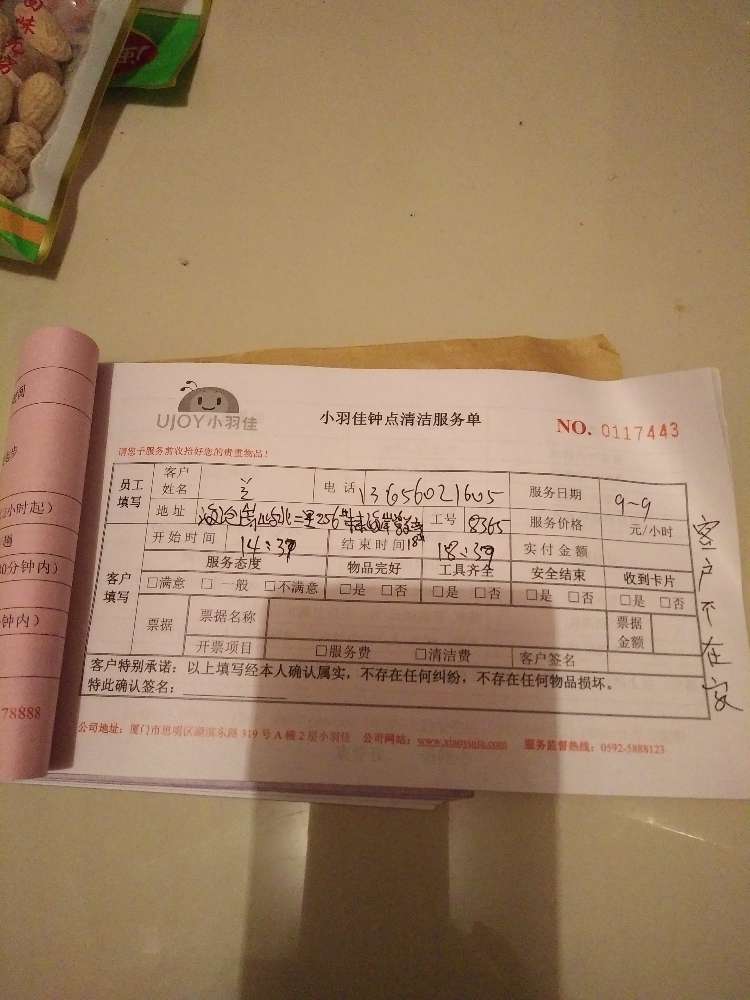 UJOY小羽佳
小羽佳钟点清洁服务单
NO. 0117443
请您于服务前收拾好您的贵重物品!
员工填写 客户姓名 电话 13656021605 服务日期 9-9
地址 工号 8365 服务价格 元/小时
开始时间 14:39 结束时间 18:39 实付金额
客户填写 服务态度 物品完好 工具齐全 安全结束 收到卡片
□满意 □一般 □不满意 □是 □否 □是 □否 □是 □否 □是 □否
票据 票据名称 票据金额
开票项目 □服务费 □清洁费 客户签名
客户特别承诺：以上填写经本人确认属实，不存在任何纠纷，不存在任何物品损坏。
特此确认签名：
公司地址：厦门市思明区湖滨东路 319 号 A 幢 2 层小羽佳 公司网站： 服务监督热线：0592-5888123
客户不在家
小时起）
0分钟内）
钟内）
78888